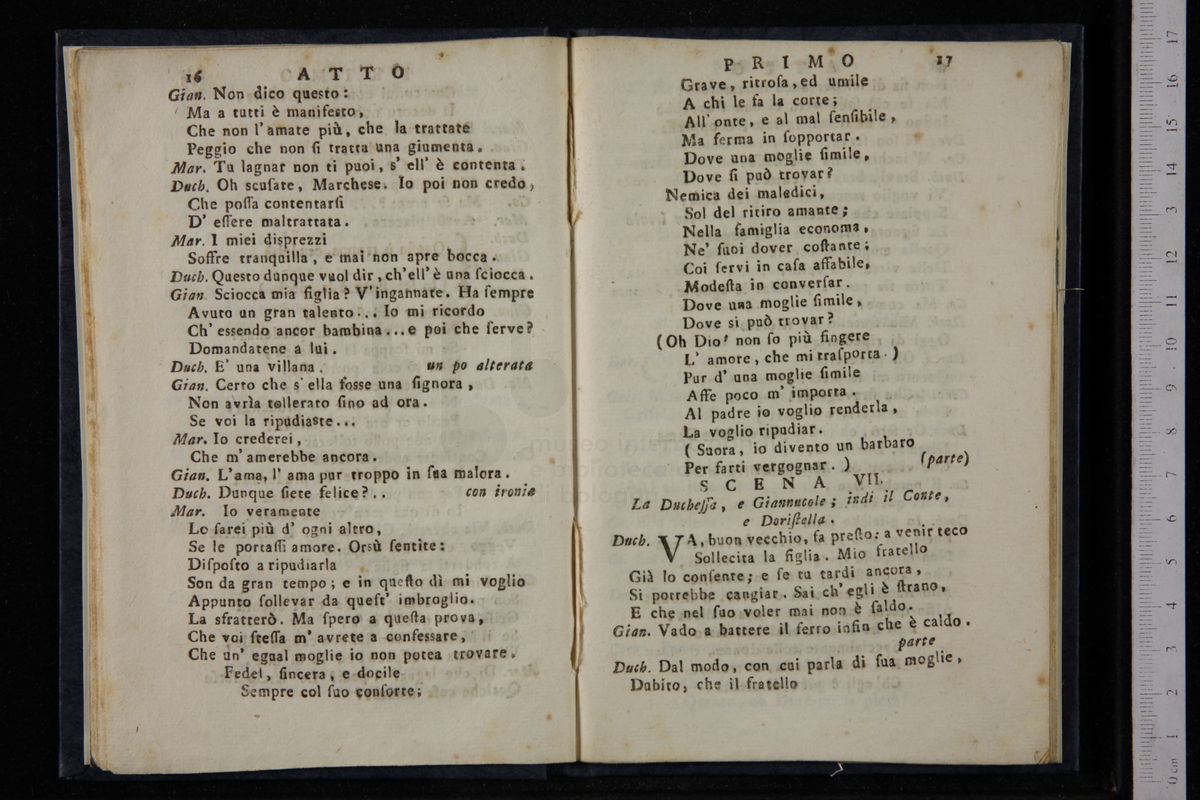 16 ATTO
Gian. Non dico questo:
Ma a tutti è manifesto,
Che non l'amate più, che la trattate
Peggio che non ſi tratta una giumenta.
Mar. Tu lagnar non ti puoi, s' ell' è contenta.
Duch. Oh scuſate, Marchese. Io poi non credo,
Che poſſa contentarſi
D' eſſere maltrattata.
Mar. I miei disprezzi
Soffre tranquilla, e mai non apre bocca.
Duch. Questo dunque vuol dir, ch'ell' è una ſciocca.
Gian. Sciocca mia figlia? V'ingannate. Ha ſempre
Avuto un gran talento... Io mi ricordo
Ch' essendo ancor bambina...e poi che ſerve?
Domandatene a lui.
Duch. E' una villana. un po alterata
Gian. Certo che s' ella foſse una ſignora,
Non avrìa tollerato ſino ad ora.
Se voi la ripudiaste...
Mar. Io crederei,
Che m' amerebbe ancora.
Gian. L'ama, l' ama pur troppo in ſua malora.
Duch. Dunque ſiete felice?.. con ironia
Mar. Io veramente
Lo ſarei più d' ogni altro,
Se le portaſſi amore. Orsù ſentite:
Diſpoſto a ripudiarla
Son da gran tempo; e in queſto dì mi voglio
Appunto ſollevar da queſt' imbroglio.
La sfratterò. Ma ſpero a queſta prova,
Che voi ſteſſa m' avrete a confessare,
Che un' egual moglie io non potea trovare.
Fedel, ſincera, e docile
Sempre col ſuo conſorte;
PRIMO 17
Grave, ritroſa, ed umile
A chi le fa la corte;
All' onte, e al mal ſenſibile,
Ma ferma in ſopportar.
Dove una moglie ſimile,
Dove ſi può trovar?
Nemica dei maledici,
Sol del ritiro amante;
Nella famiglia economa,
Ne' ſuoi dover coſtante;
Coi ſervi in caſa affabile,
Modeſta in converſar.
Dove una moglie ſimile,
Dove si può trovar?
(Oh Dio! non ſo più fingere
L' amore, che mi traſporta.)
Pur d' una moglie ſimile
Affe poco m' importa.
Al padre io voglio renderla,
La voglio ripudiar.
(Suora, io divento un barbaro
Per farti vergognar.) (parte)
SCENA VII.
La Ducheſſa, e Giannucole; indi il Conte,
e Doriſtella.
Duch. VA, buon vecchio, fa preſto: a venir teco
Sollecita la figlia. Mio fratello
Già lo conſente; e ſe tu tardi ancora,
Si potrebbe cangiar. Sai ch' egli è ſtrano,
E che nel ſuo voler mai non è ſaldo.
Gian. Vado a battere il ferro infin che è caldo.
parte
Duch. Dal modo, con cui parla di ſua moglie,
Dubito, che il fratello
museo inter
e biblioteca
di bolo
17
16
15
14
13
12
11
10
9
8
7
6
5
4
3
2
1
0 cm